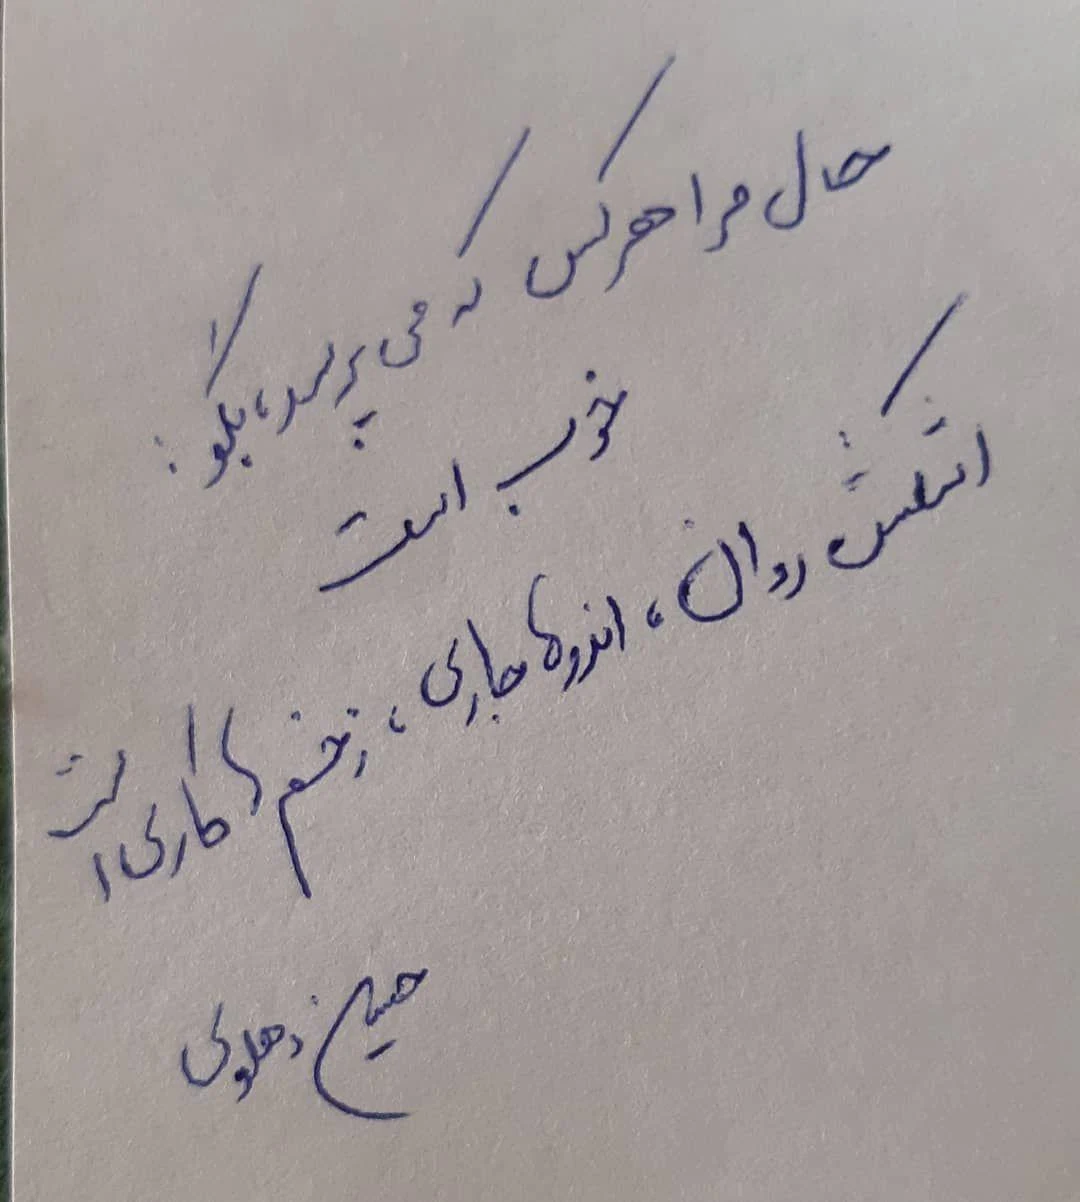 حال مرا هر کس که می پرسد، بگو:
خوب است
اشکش روان، اندوه‌ها جاری، زخم ها کاری است
حسین دهلوی